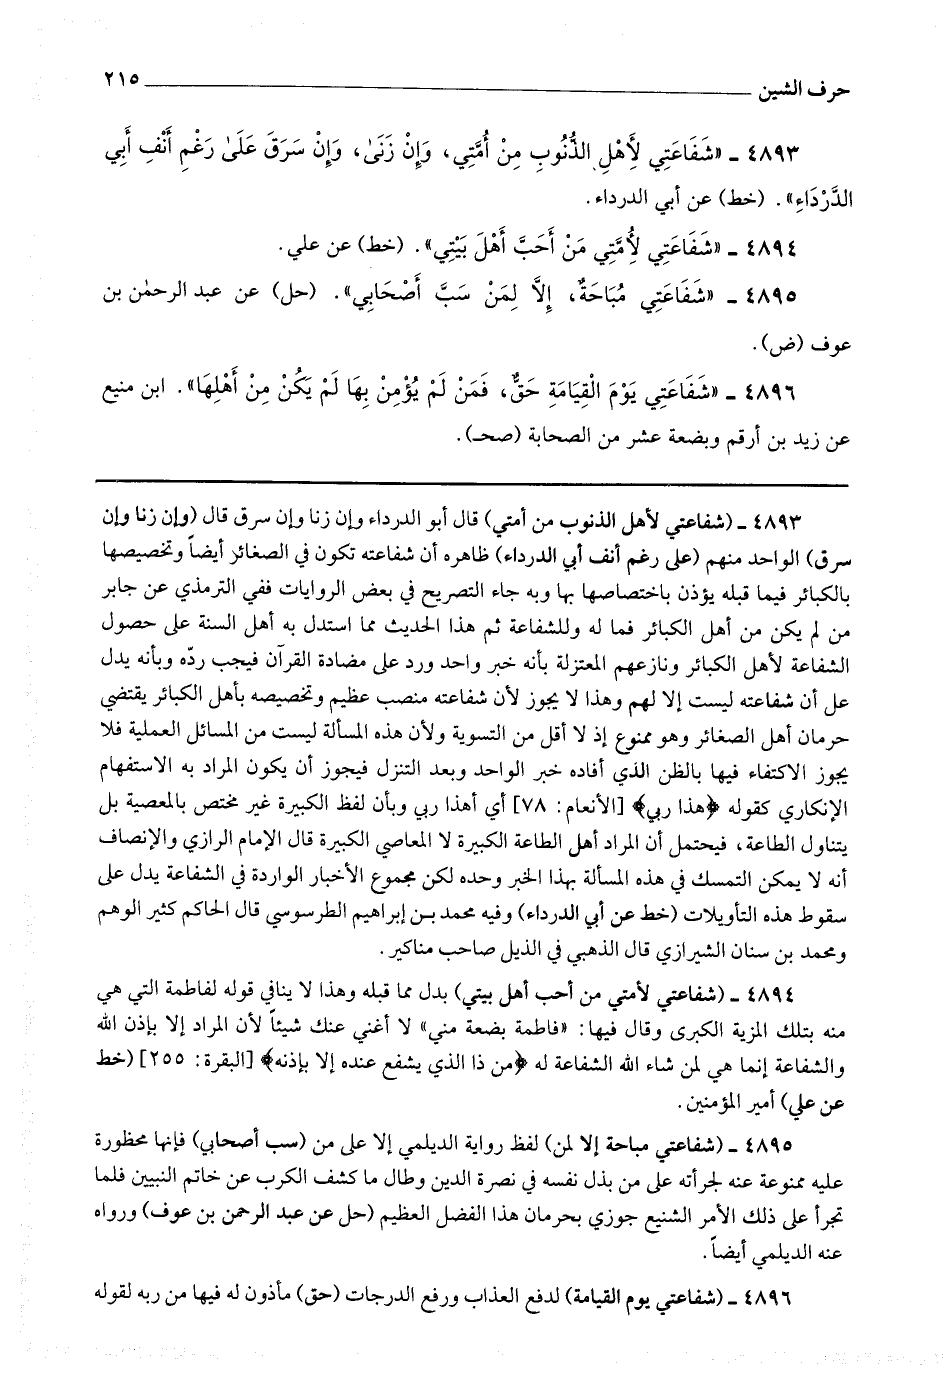 حرف الشين ٢١٥
٤٨٩٣ ـ «شَفَاعَتِي لِأَهْلِ الذُّنُوبِ مِنْ أُمَّتِي، وَإِنْ زَنَىٰ، وَإِنْ سَرَقَ عَلَىٰ رَغْمِ أَنْفِ أَبِي
الدَّرْدَاءِ». (خط) عن أبي الدرداء.
٤٨٩٤ ـ «شَفَاعَتِي لِأُمَّتِي مَنْ أَحَبَّ أَهْلَ بَيْتِي». (خط) عن علي.
٤٨٩٥ ـ «شَفَاعَتِي مُبَاحَةٌ، إِلَّا لِمَنْ سَبَّ أَصْحَابِي». (حل) عن عبد الرحمٰن بن
عوف (ض).
٤٨٩٦ ـ «شَفَاعَتِي يَوْمَ الْقِيَامَةِ حَقٌّ، فَمَنْ لَمْ يُؤْمِنْ بِهَا لَمْ يَكُنْ مِنْ أَهْلِهَا». ابن منيع
عن زيد بن أرقم وبضعة عشر من الصحابة (صحـ).
٤٨٩٣ ـ (شفاعتي لأهل الذنوب من أمتي) قال أبو الدرداء وإن زنا وإن سرق قال (وإن زنا وإن
سرق) الواحد منهم (على رغم أنف أبي الدرداء) ظاهره أن شفاعته تكون في الصغائر أيضاً وتخصيصها
بالكبائر فيما قبله يؤذن باختصاصها بها وبه جاء التصريح في بعض الروايات ففي الترمذي عن جابر
من لم يكن من أهل الكبائر فما له وللشفاعة ثم هذا الحديث مما استدل به أهل السنة على حصول
الشفاعة لأهل الكبائر ونازعهم المعتزلة بأنه خبر واحد ورد على مضادة القرآن فيجب ردّه وبأنه يدل
عل أن شفاعته ليست إلا لهم وهذا لا يجوز لأن شفاعته منصب عظيم وتخصيصه بأهل الكبائر يقتضي
حرمان أهل الصغائر وهو ممنوع إذ لا أقل من التسوية ولأن هذه المسألة ليست من المسائل العملية فلا
يجوز الاكتفاء فيها بالظن الذي أفاده خبر الواحد وبعد التنزل فيجوز أن يكون المراد به الاستفهام
الإنكاري كقوله ﴿هذا ربي﴾ [الأنعام: ٧٨] أي أهذا ربي وبأن لفظ الكبيرة غير مختص بالمعصية بل
يتناول الطاعة، فيحتمل أن المراد أهل الطاعة الكبيرة لا المعاصي الكبيرة قال الإمام الرازي والإنصاف
أنه لا يمكن التمسك في هذه المسألة بهذا الخبر وحده لكن مجموع الأخبار الواردة في الشفاعة يدل على
سقوط هذه التأويلات (خط عن أبي الدرداء) وفيه محمد بن إبراهيم الطرسوسي قال الحاكم كثير الوهم
ومحمد بن سنان الشيرازي قال الذهبي في الذيل صاحب مناكير.
٤٨٩٤ ـ (شفاعتي لأمتي من أحب أهل بيتي) بدل مما قبله وهذا لا ينافي قوله لفاطمة التي هي
منه بتلك المزية الكبرى وقال فيها: «فاطمة بضعة مني» لا أغني عنك شيئاً لأن المراد إلا بإذن الله
والشفاعة إنما هي لمن شاء الله الشفاعة له ﴿من ذا الذي يشفع عنده إلا بإذنه﴾ [البقرة: ٢٥٥] (خط
عن علي) أمير المؤمنين.
٤٨٩٥ ـ (شفاعتي مباحة إلا لمن) لفظ رواية الديلمي إلا على من (سب أصحابي) فإنها محظورة
عليه ممنوعة عنه لجرأته على من بذل نفسه في نصرة الدين وطال ما كشف الكرب عن خاتم النبيين فلما
تجرأ على ذلك الأمر الشنيع جوزي بحرمان هذا الفضل العظيم (حل عن عبد الرحمن بن عوف) ورواه
عنه الديلمي أيضاً.
٤٨٩٦ ـ (شفاعتي يوم القيامة) لدفع العذاب ورفع الدرجات (حق) مأذون له فيها من ربه لقوله